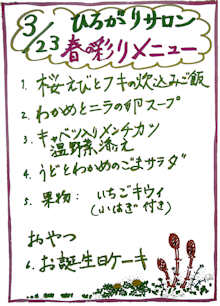 3/23 ひろがりサロン
春の彩りメニュー
1. 桜えびとフキの炊込みご飯
2. わかめとニラの卵スープ
3. キャベツ入りメンチカツ
温野菜添え
4. うどとわかめのごまサラダ
5. 果物: いちごキウイ
(小はぎ付き)
おやつ
6. お誕生日ケーキ